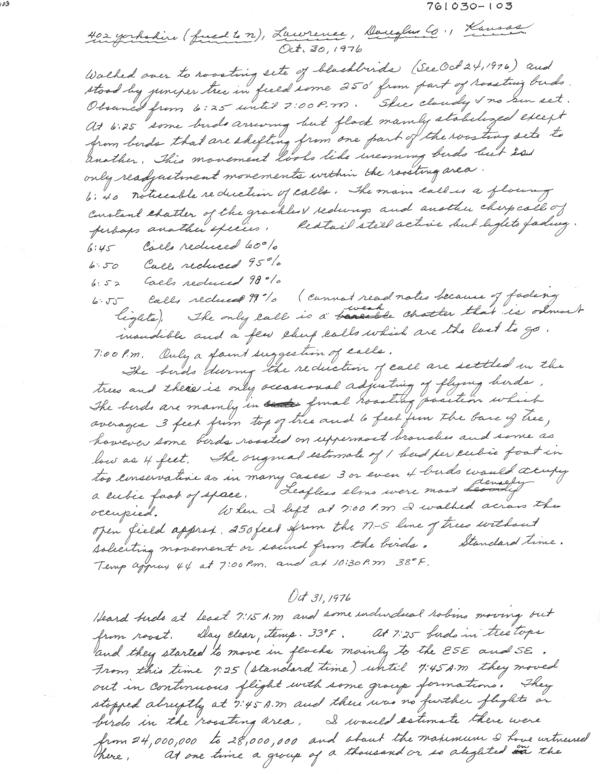 103
761030-103
402 Yorkshire (fused to n), Lawrence, Douglas Co., Kansas
Oct. 30, 1976
Walked over to roosting site of blackbirds (See Oct 24, 1976) and
stood by juniper tree in field some 250' from part of roosting birds.
Observed from 6:25 until 7:00 P.M. Skie cloudy & no sun set.
At 6:25 some birds arriving but flock mainly stabilized except
from birds that are shifting from one part of the roosting site to
another. This movement looks like incoming birds but is
only readjustment movements within the roosting area.
6:40 noticeable reduction of calls. The main call is a flowing
constant chatter of the grackles & redwings and another chirp call of
perhaps another species. Redtail still active but lights fading.
6:45 Calls reduced 60%
6:50 Calls reduced 95%
6:52 Calls reduced 98%
6:55 Calls reduced 99% (cannot read notes because of fading
lights). The only call is a weak chatter that is almost
inaudible and a few chirp calls which are the last to go.
7:00 P.m. Only a faint suggestion of calls.
The birds during the reduction of call are settled in the
trees and there is only occasional adjusting of flying birds.
The birds are mainly in final roosting position which
averages 3 feet from top of tree and 6 feet from the base of tree,
however some birds roosted on uppermost branches and some as
low as 4 feet. The original estimate of 1 bird per cubic foot in
too conservative as in many cases 3 or even 4 birds would occupy
a cubic foot of space. Leafless elms were most densely
occupied. When I left at 7:00 P.m I walked across the
open field approx. 250 feet from the N-S line of trees without
soliciting movement or sound from the birds. Standard time.
Temp approx 44 at 7:00 P.m. and at 10:30 P.m 38°F.
Oct 31, 1976
Heard birds at least 7:15 A.m and some individual robins moving out
from roost. Day clear, temp. 33°F. At 7:25 birds in tree tops
and they started to move in flocks mainly to the ESE and SE.
From this time 7:25 (standard time) until 7:45 A.m they moved
out in continuous flight with some group formations. They
stopped abruptly at 7:45 A.m and there was no further flights or
birds in the roosting area. I would estimate there were
from 24,000,000 to 28,000,000 and about the maximum I have witnessed
here. At one time a group of a thousand or so alighted on the